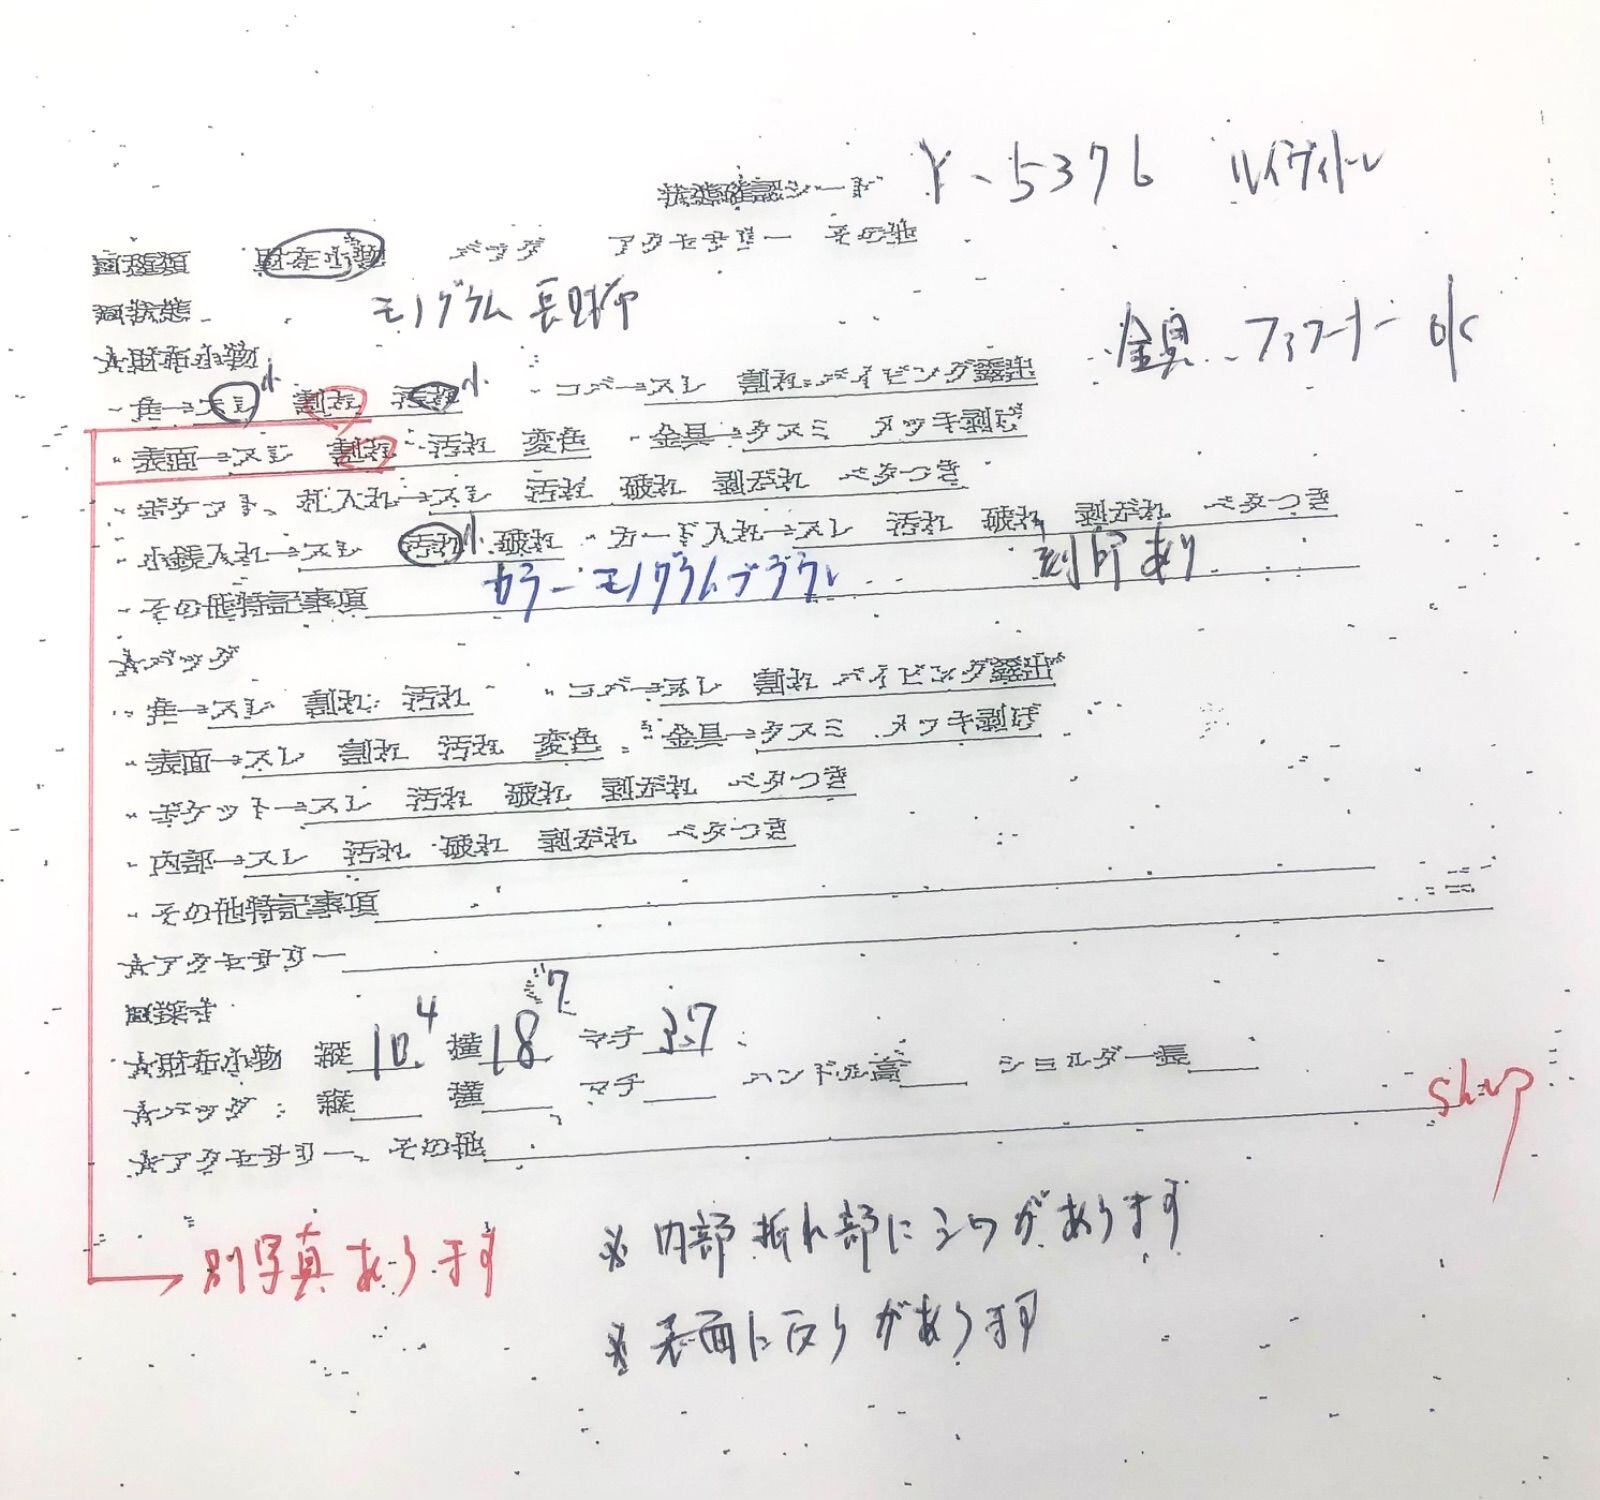 状態確認シート Y-5376 ルイヴィトン
■種類 財布小物 バッグ アクセサリー その他
■状態 モノグラム 長財布
金具、ファスナー ok
☆財布小物
・角→スレ小 割れ 汚れ小 ・コバ→スレ 割れ パイピング露出
・表面→スレ 割れ 汚れ 変色 ・金具→クスミ メッキ剥げ
・ポケット、札入れ→スレ 汚れ 破れ 剥がれ ベタつき
・小銭入れ→スレ 汚れ小 破れ ・カード入れ→スレ 汚れ 破れ 剥がれ ベタつき
・その他特記事項 カラー モノグラムブラウン 刻印あり
☆バッグ
・角→スレ 割れ 汚れ ・コバ→スレ 割れ パイピング露出
・表面→スレ 割れ 汚れ 変色 ・金具→クスミ メッキ剥げ
・ポケット→スレ 汚れ 破れ 剥がれ ベタつき
・内部→スレ 汚れ 破れ 剥がれ ベタつき
・その他特記事項
☆アクセサリー
■採寸
☆財布小物 縦 10.4 横 18.7 マチ 3.7
☆バッグ 縦 横 マチ ハンドル高 ショルダー長
☆アクセサリー、その他
shop
別写真あります
※内部折れ部にシワがあります
※表面に反りがあります